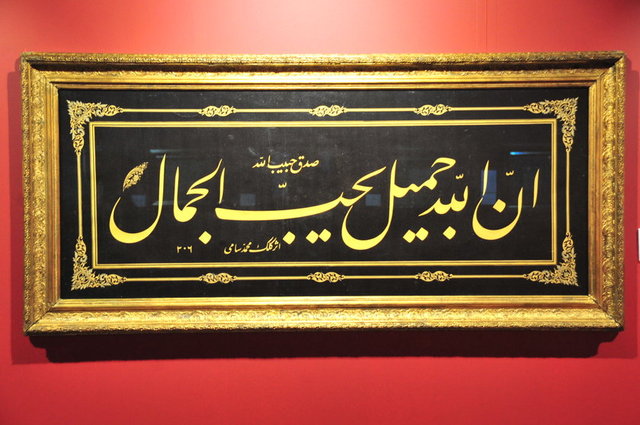 ان الله جميل يحب الجمال
صدق حبيب الله
اثر كلك محمد سامى ٣٠٦